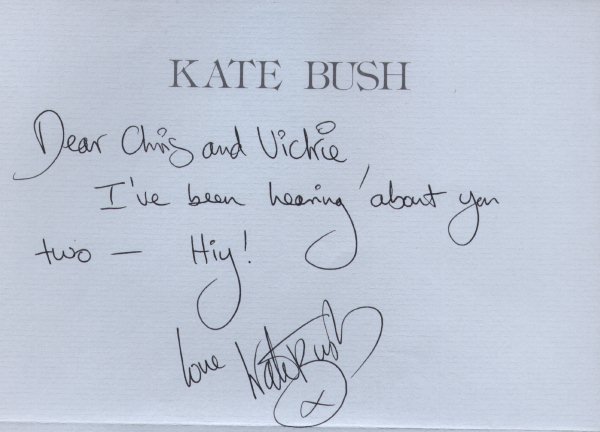 KATE BUSH
Dear Chris and Vickie,
I've been hearing 'about you
two — Hiy!
love Kate Bush
x